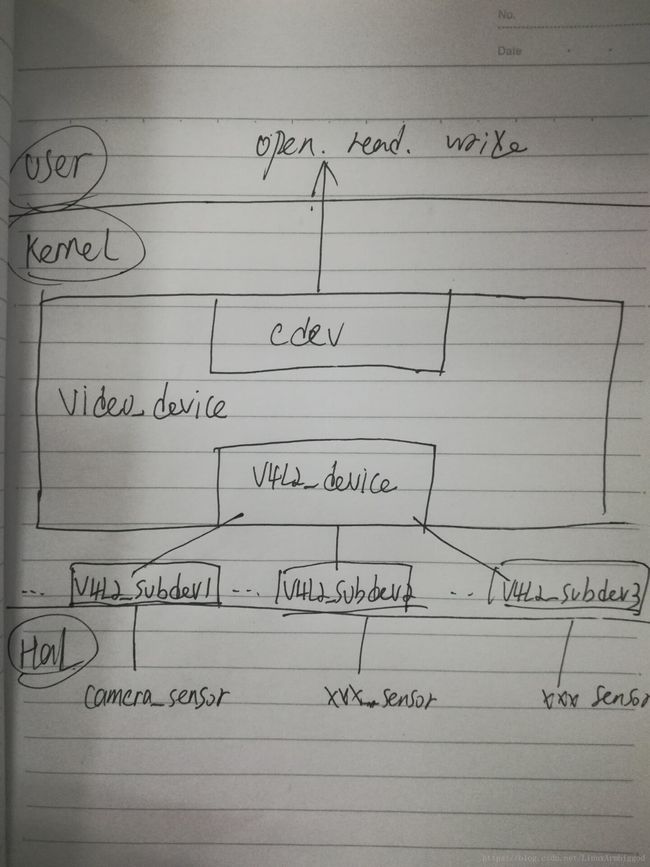 No.
Date
open. read. write
user
Kernel
cdev
Video_device
V4L2_device
... V4L2_subdev1 ... V4L2_subdev2 .. V4L2_subdev3
Hal
camera_sensor xxx_sensor xxx sensor
https://blog.csdn.net/LinuxArmbiggod